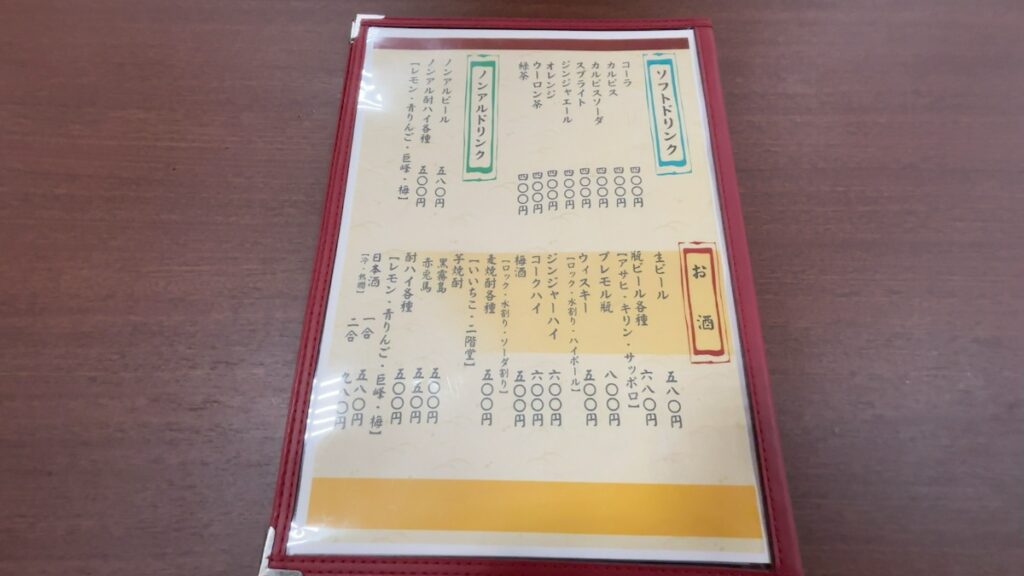 ソフトドリンク
コーラ 四〇〇円
カルピス 四〇〇円
カルピスソーダ 四〇〇円
スプライト 四〇〇円
ジンジャエール 四〇〇円
オレンジ 四〇〇円
ウーロン茶 四〇〇円
緑茶 四〇〇円
ノンアルドリンク
ノンアルビール 五八〇円
ノンアル酎ハイ各種 五〇〇円
[レモン・青りんご・巨峰・梅]
お酒
生ビール 五八〇円
瓶ビール各種 六八〇円
[アサヒ・キリン・サッポロ]
プレモル瓶 八〇〇円
ウィスキー 五〇〇円
[ロック・水割り・ハイボール]
ジンジャーハイ 六〇〇円
コークハイ 六〇〇円
梅酒 五〇〇円
[ロック・水割り・ソーダ割り]
麦焼酎各種 五〇〇円
[いいちこ・二階堂]
芋焼酎
黒霧島 五〇〇円
赤兎馬 五五〇円
酎ハイ各種 五〇〇円
[レモン・青りんご・巨峰・梅]
日本酒 一合 五八〇円
[冷・熱燗] 二合 九八〇円